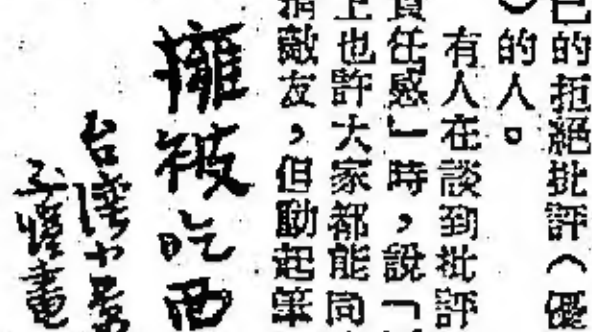 己的拒絕批評（優
）的人。
有人在談到批評
責任感」時，說「
上也許大家都能同
清敵友，但動起筆
擁被吃西
台灣十
子愷畫